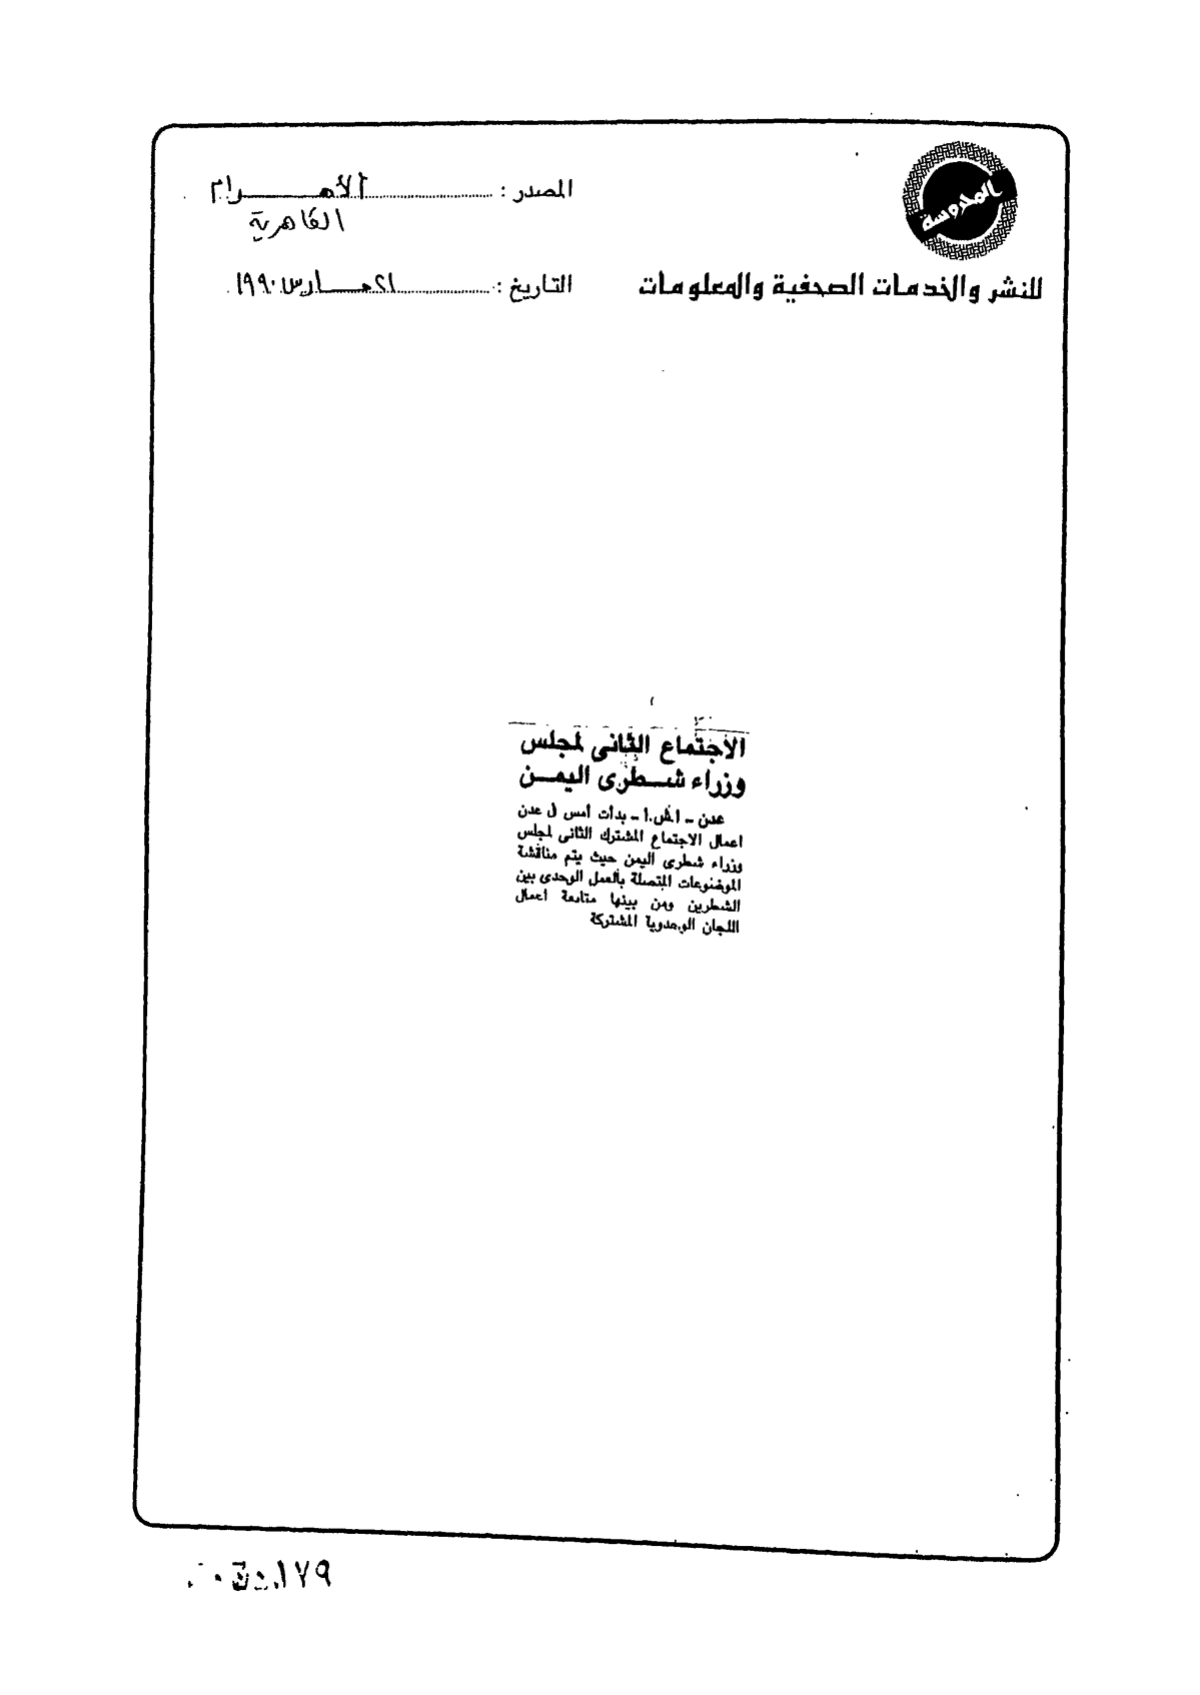 المحروسة
المصدر : الأهــــرام
القاهرية
للنشر والخدمات الصحفية والمعلومات
التاريخ : ٢١ مـــارس ١٩٩٠
الاجتماع الثانى لمجلس
وزراء شطرى اليمن
عدن - أ.ش.أ - بدأت أمس فى عدن
اعمال الاجتماع المشترك الثانى لمجلس
وزراء شطرى اليمن حيث يتم مناقشة
الموضوعات المتصلة بالعمل الوحدى بين
الشطرين ومن بينها متابعة اعمال
اللجان الوحدوية المشتركة
١٧٩